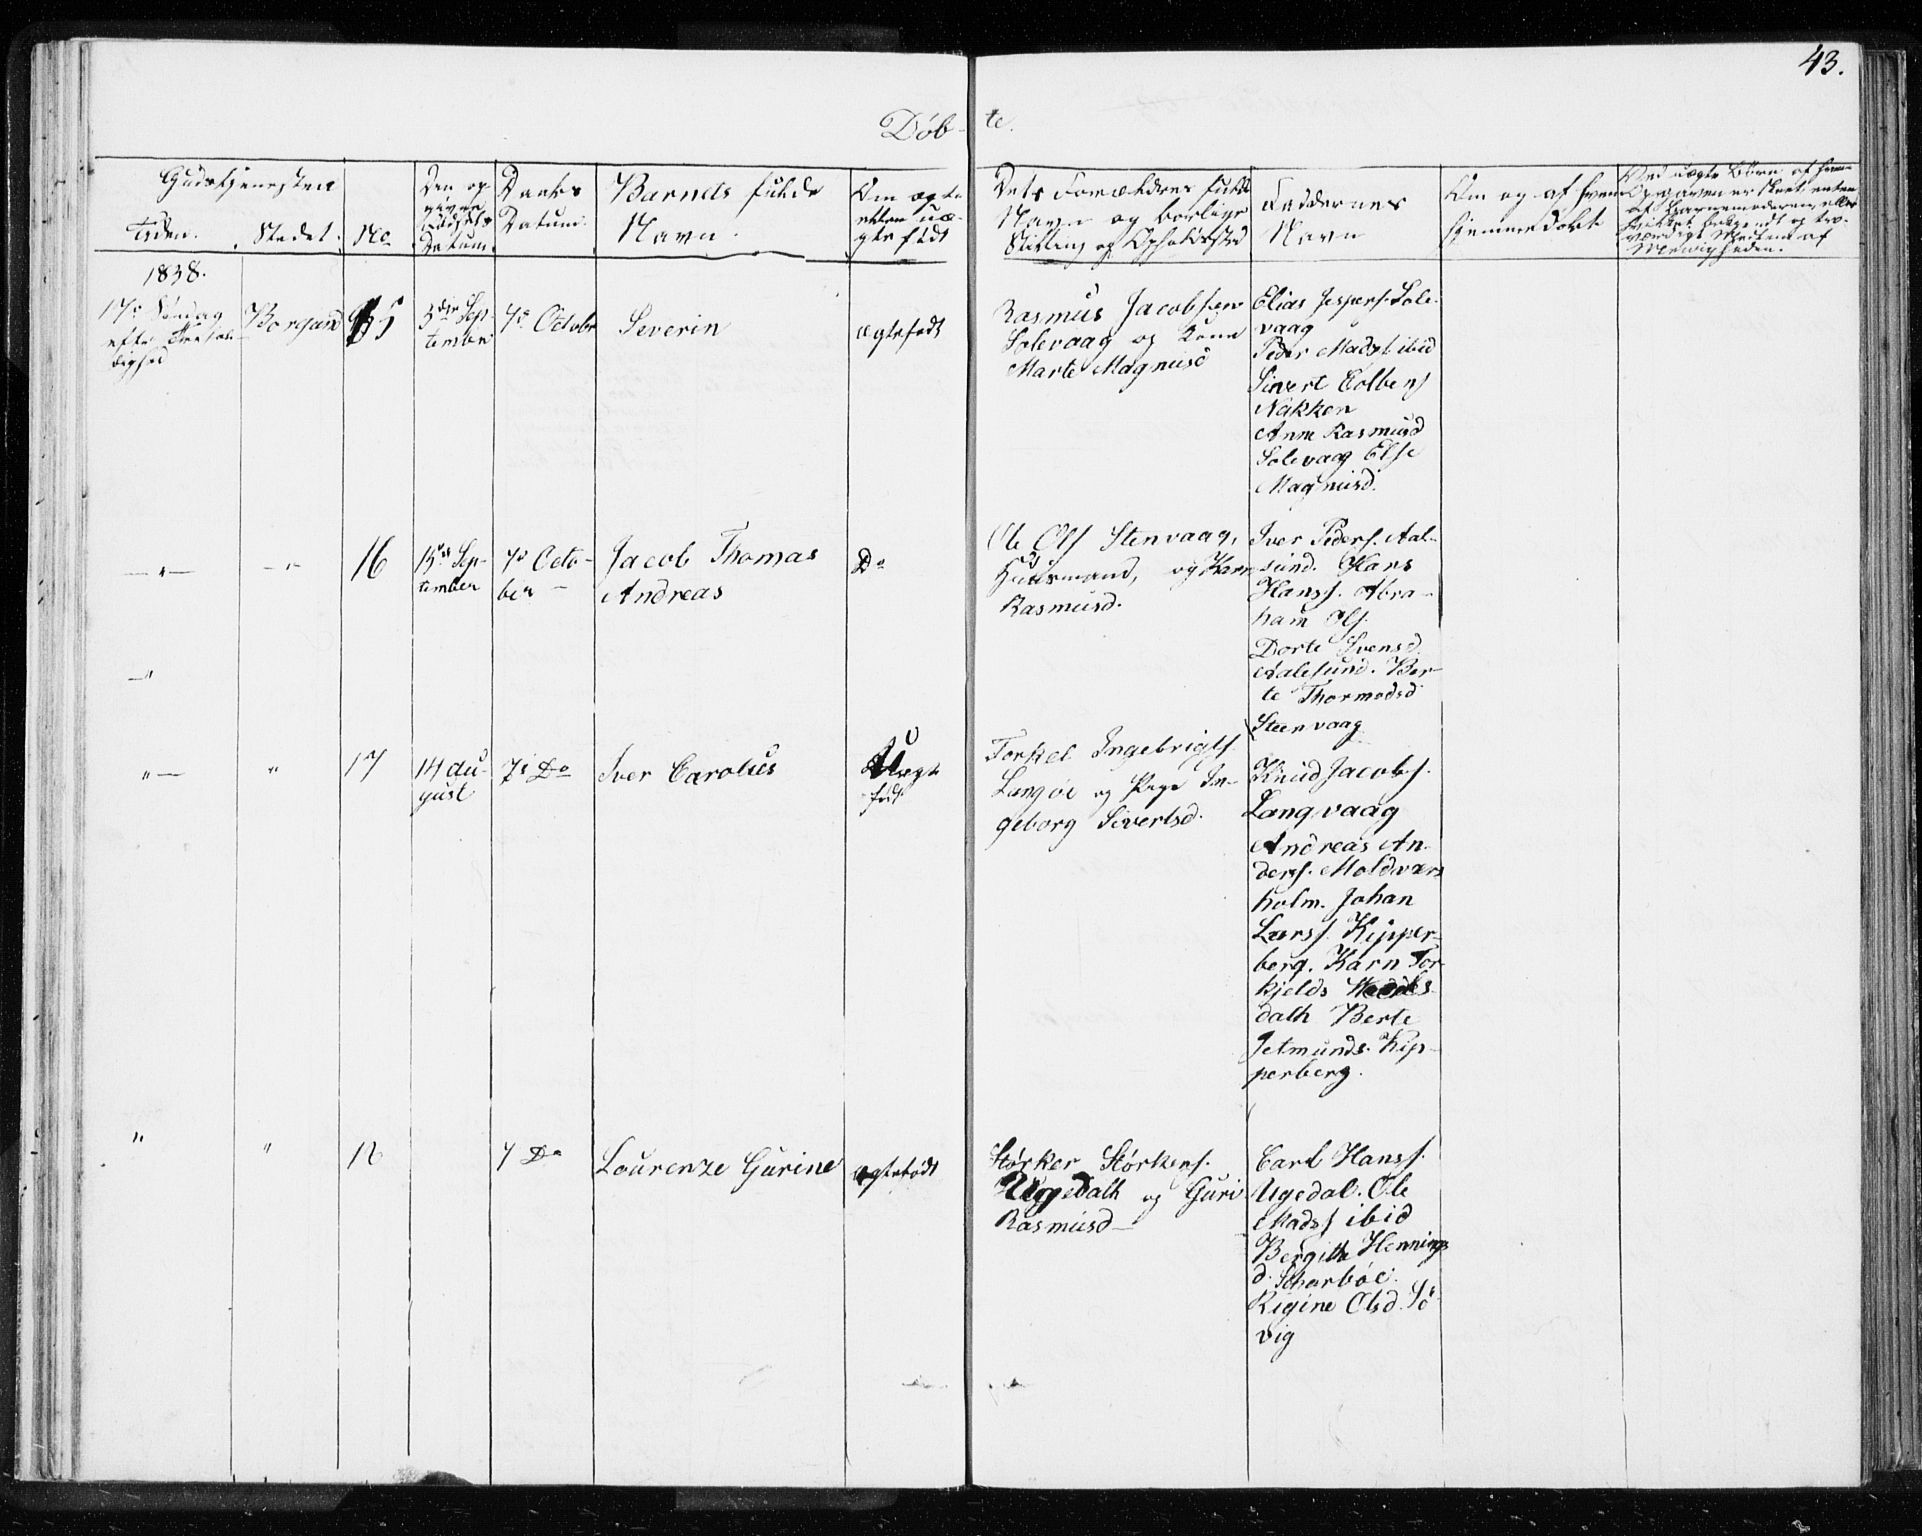 43.
Døb- te.
Gudstjenesten
Tiden. Stedet. No
Datum.
Daabs
Datum.
Barnets fulde
Navn.
Om ægte
eller uæ-
gte født
Dets Forældres fulde
Navn og borlige
Stilling og Opholdssted
Faddernes
Navn
Om og af hvem
hjemmedøbt
Menigheden.
1838.
17de Søndag
efter Trefol-
dighed
Borgund
15
3die Sep-
tember
7de October
Severin
ægtefødt
Rasmus Jacobsen
Solevaag og Kone
Marte Magnusd
Elias Jespers. Sole-
vaag
Peder Madss ibid
Sivert Colbens
Nakken
Anne Rasmusd
Solevaag Else
Magnusd.
—"— —"— 16
15de Sep-
tember
7de Octo-
ber —
Jacob Thomas
Andreas
Do
Ole Ols Stenvaag,
Huusmand, og Karn
Rasmusd.
Iver Peders. Aal-
sund. Hans
Hanss. Abra-
ham Ols.
Dorte Svensd.
Aalesund. Ber-
te Thormodsd
Steenvaag
—"
"— " 17
14 Au-
gust
7de Do
Iver Carolus
Uægt
født
Torkel Ingebrigts.
Langøe og Pige In-
geborg Sivertsd.
Knud Jacobs.
Langvaag
Andreas An-
derss. Moldvær
holm. Johan
Larss. Kipper-
berg. Karn Tor-
kjelds
dalh Berte
Jetmunds. Kip-
perberg.
" " 18
7 Do
Lourenze Gurine
ægtefødt
Størker Størkers.
Ugedalh og Guri
Rasmusd—
Carl Hanss.
Ugedal. Ole
Madss ibid
Bergitte Hennings
d. Scharbøe.
Regine Olsd. Sø-
vig